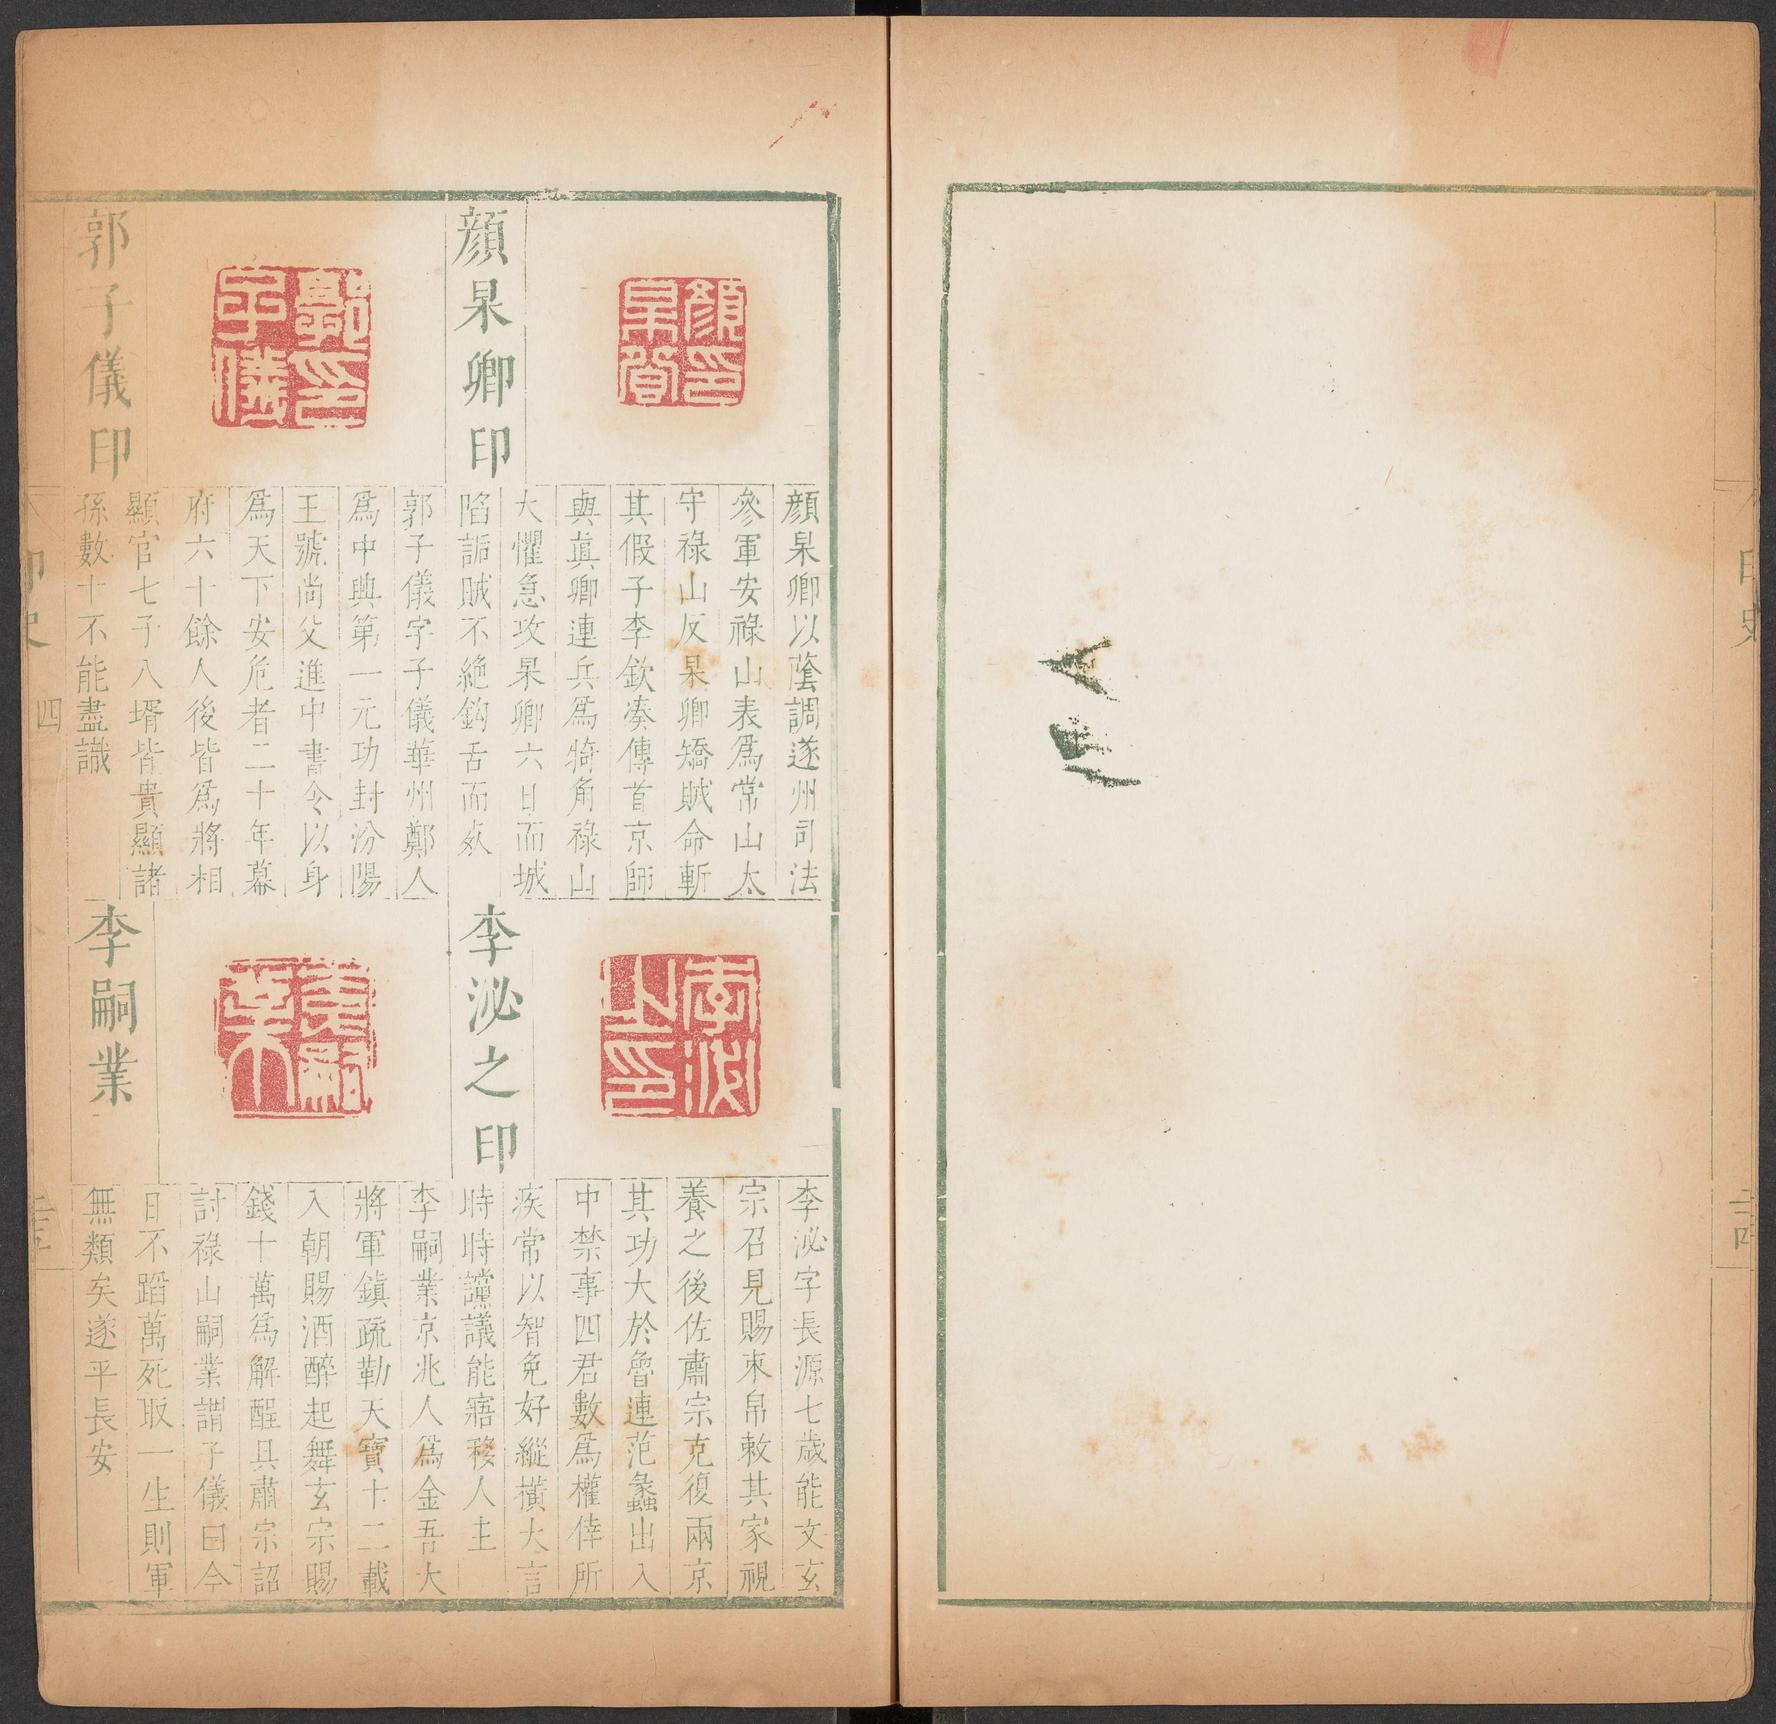 印史
顏杲卿印
顏印杲卿
顏杲卿以蔭調遂州司法
參軍安祿山表為常山太
守祿山反杲卿矯賊命斬
其假子李欽湊傳首京師
與眞卿連兵為犄角祿山
大懼急攻杲卿六日而城
陷詬賊不絕鈎舌而死
郭子儀印
郭印子儀
郭子儀字子儀華州鄭人
為中興第一元功封汾陽
王號尚父進中書令以身
為天下安危者二十年幕
府六十餘人後皆為將相
顯官七子八壻皆貴顯諸
孫數十不能盡識
李泌之印
李泌之印
李泌字長源七歲能文玄
宗召見賜束帛敕其家視
養之後佐肅宗克復兩京
其功大於魯連范蠡出入
中禁事四君數為權倖所
疾常以智免好縱橫大言
時時讜議能寤移人主
李嗣業
李嗣業
李嗣業京兆人為金吾大
將軍鎮疏勒天寶十二載
入朝賜酒醉起舞玄宗賜
錢十萬為解酲具肅宗詔
討祿山嗣業謂子儀曰今
日不蹈萬死取一生則軍
無類矣遂平長安
印史
四